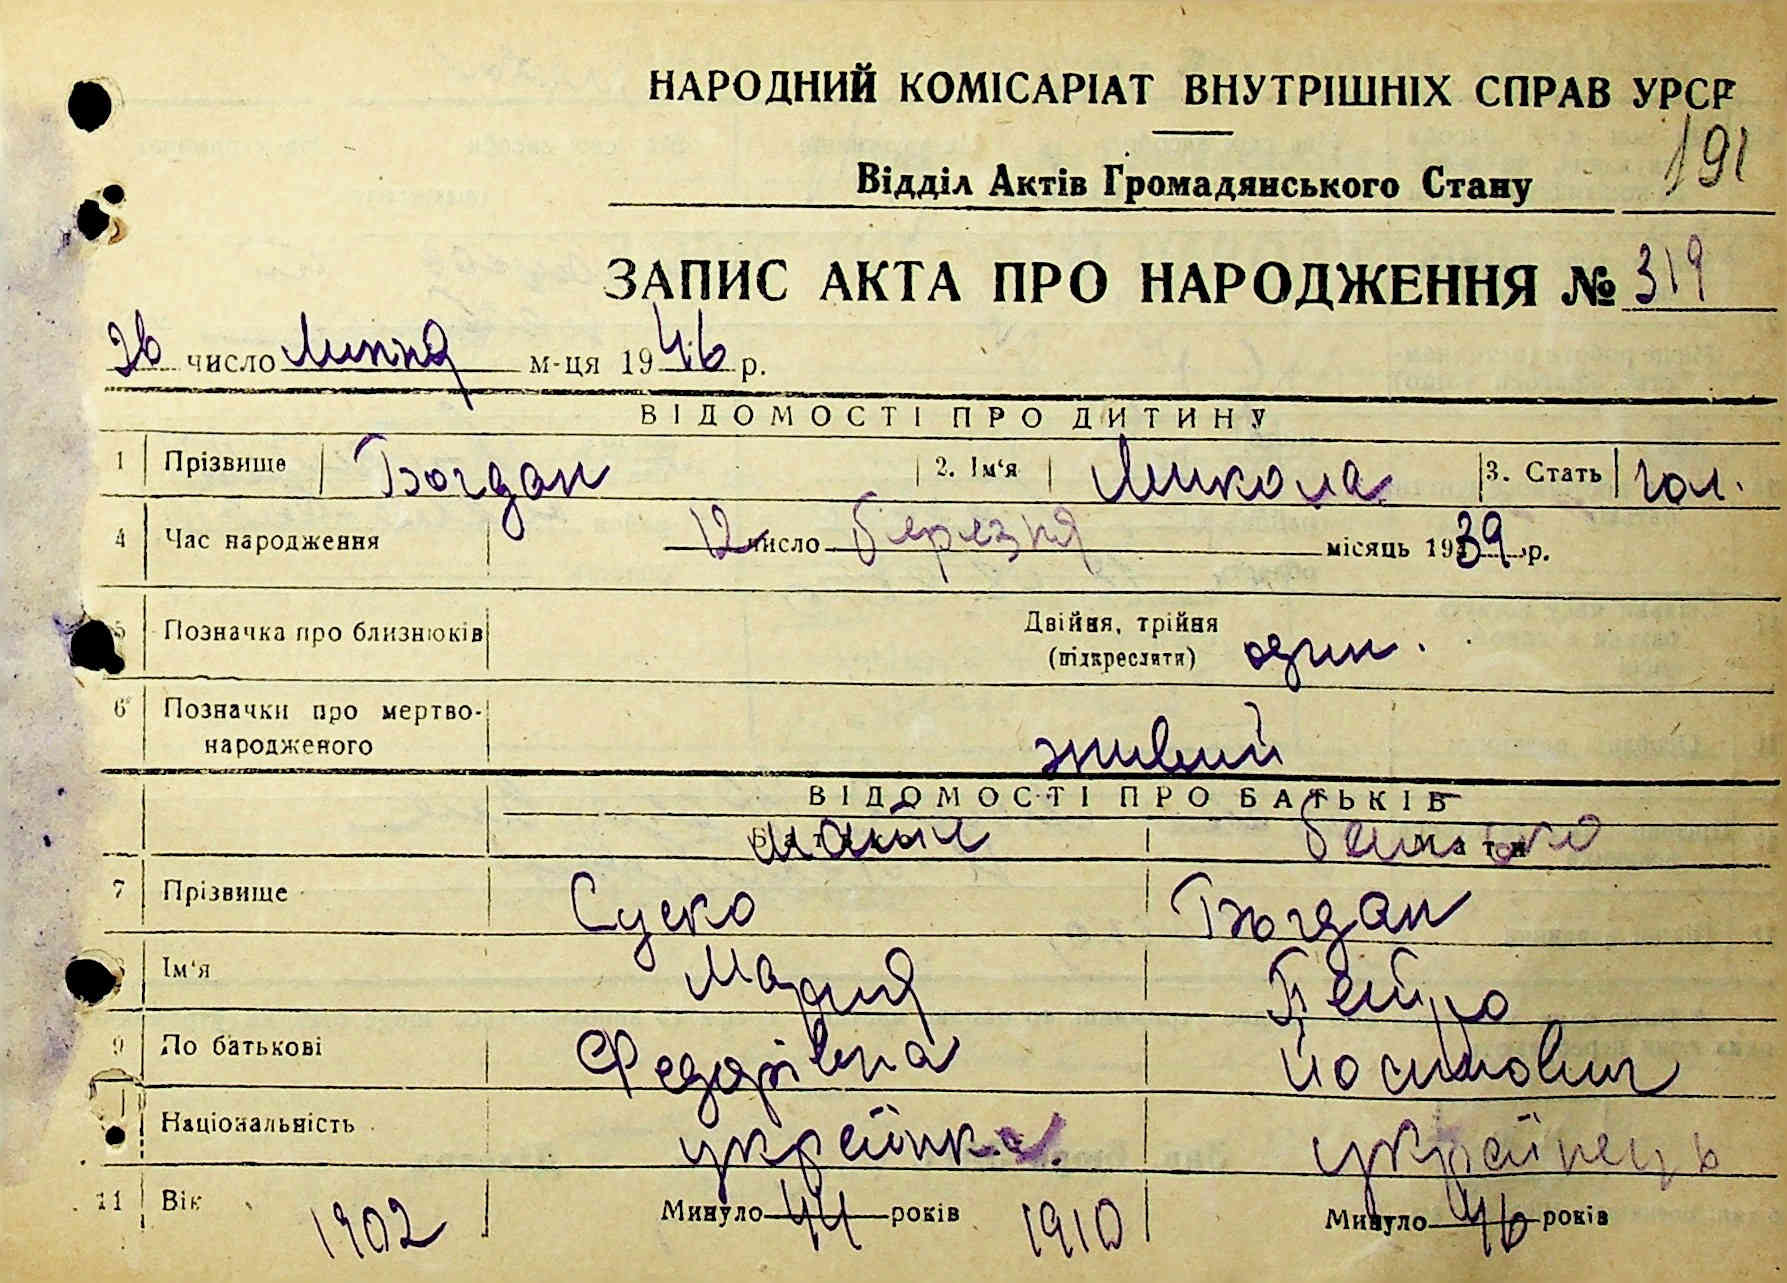 НАРОДНИЙ КОМІСАРІАТ ВНУТРІШНІХ СПРАВ УРСР
191
Відділ Актів Громадянського Стану
ЗАПИС АКТА ПРО НАРОДЖЕННЯ № 319
26 число Липня м-ця 1946 р.
ВІДОМОСТІ ПРО ДИТИНУ
1 Прізвище Богдан 2. Ім'я Микола 3. Стать чол.
4 Час народження 12 число березня місяць 1939 р.
5 Позначка про близнюків Двійня, трійня (підкреслити) один.
6 Позначки про мертво-
народженого живий
ВІДОМОСТІ ПРО БАТЬКІВ
мати батько
7 Прізвище Суско Богдан
8 Ім'я Мария Петро
9 По батькові Федорівна Йосипович
Національність українка. українець
11 Вік 1902 Минуло 44 років 1910 Минуло 46 років